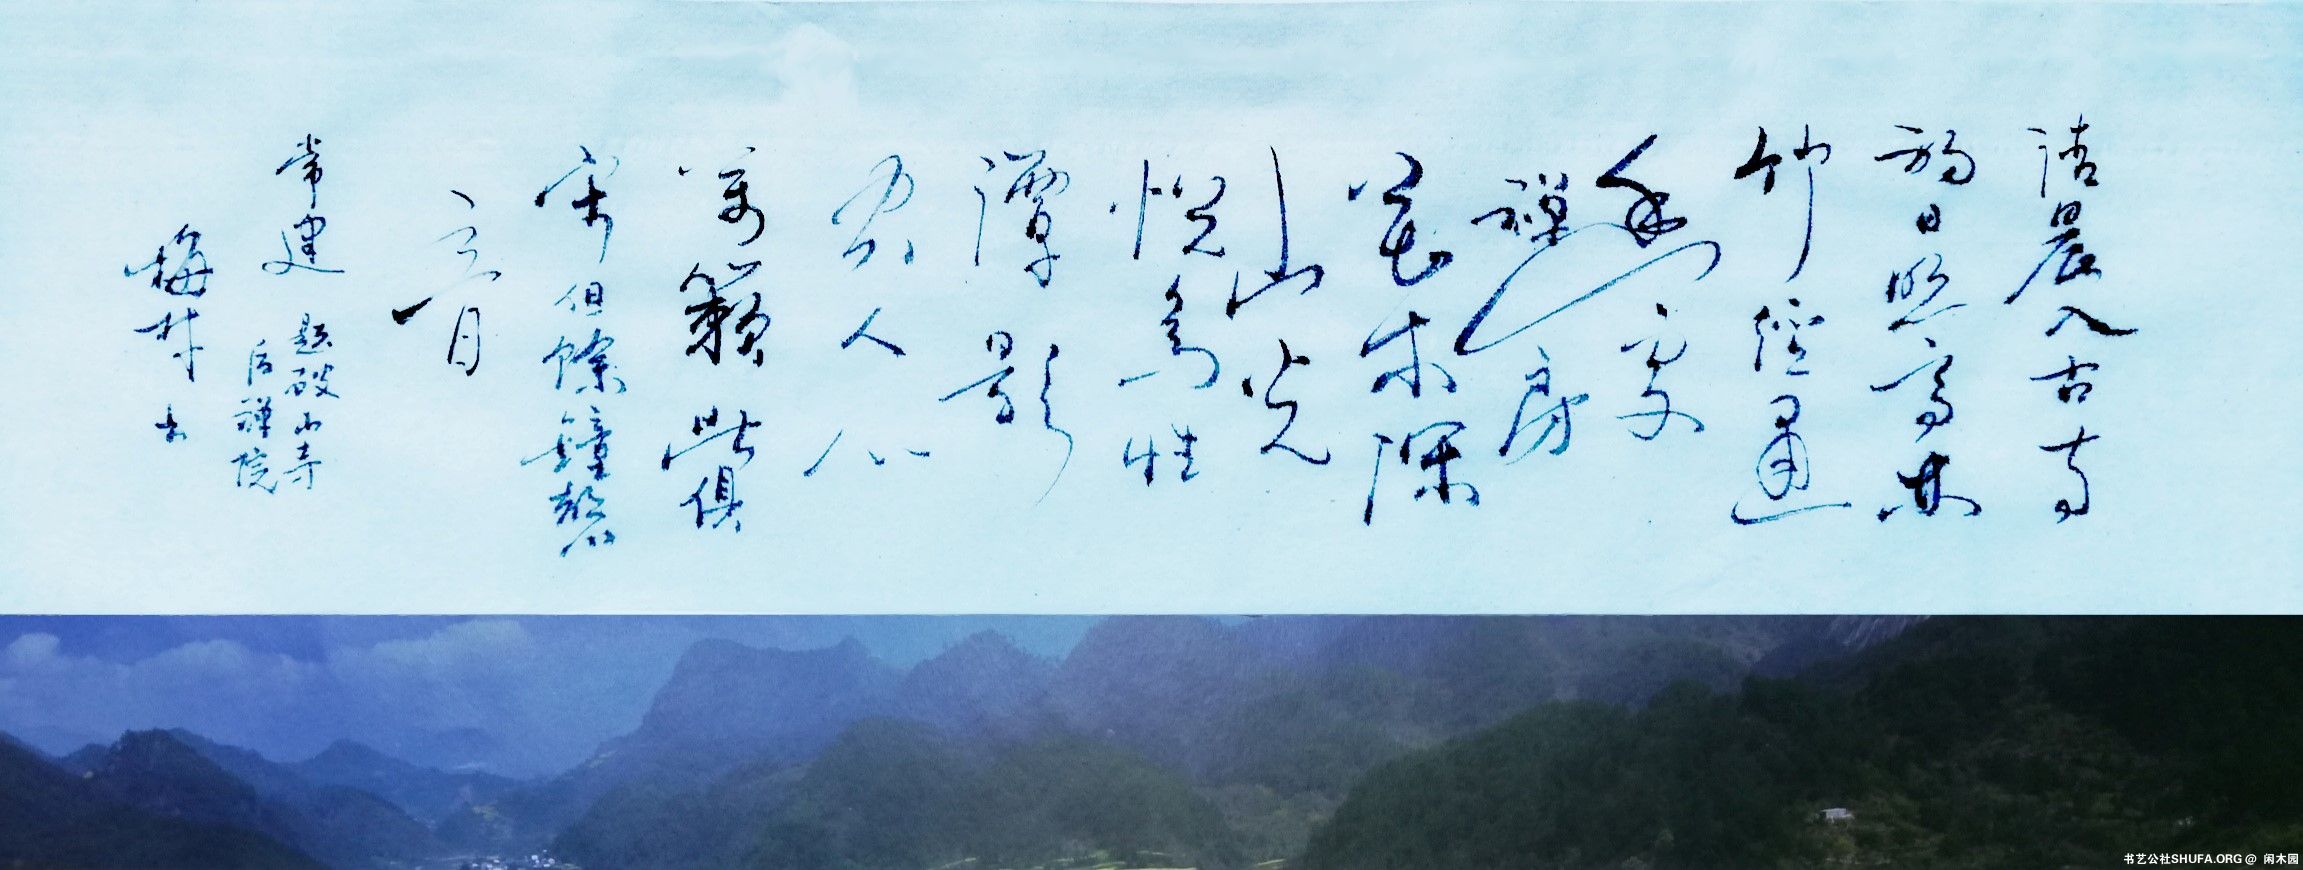 清晨入古寺
初日照高林
竹徑通
幽處
禪房
花木深
山光
悅鳥性
潭影
空人心
萬籟此俱
寂但餘鐘磬
音
常建 题破山寺
后禅院
梅村书
书艺公社SHUFA.ORG @ 闲木园